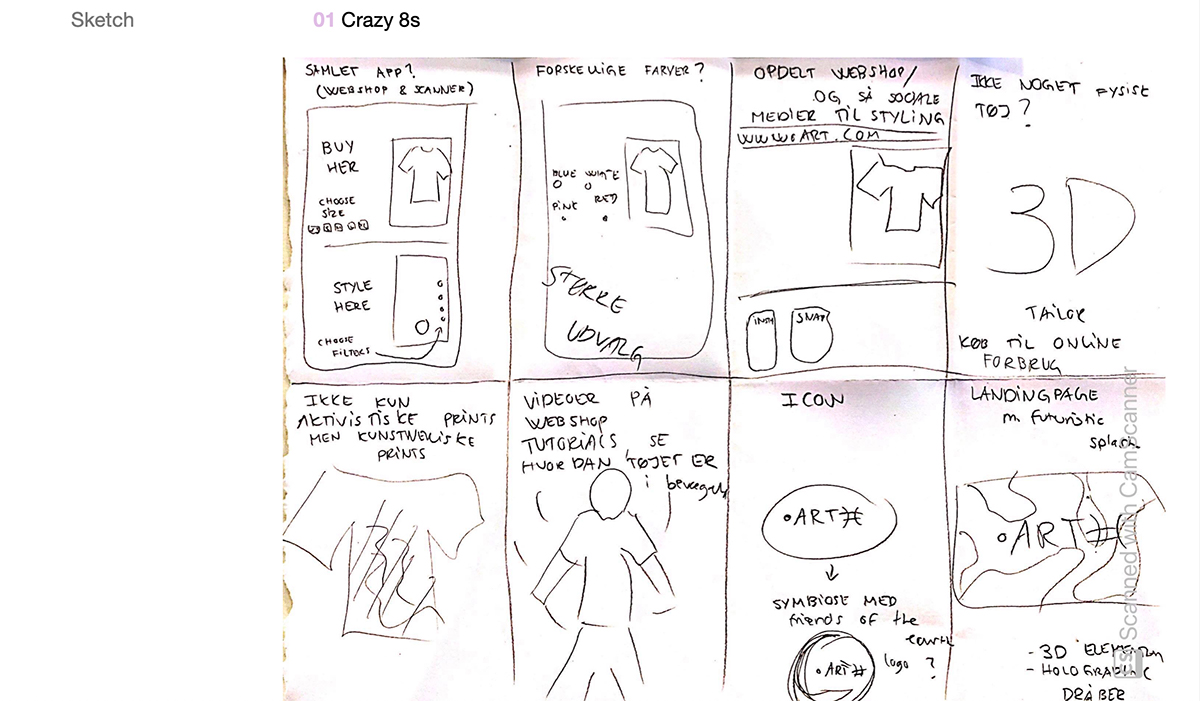 Sketch
01 Crazy 8s
SAMLET APP?
(WEBSHOP & SCANNER)
BUY
HER
CHOOSE
SIZE
STYLE
HERE
CHOOSE
FILTERS
FORSKELLIGE FARVER?
BLUE WHITE
PINK RED
STØRRE
UDVALG
OPDELT WEBSHOP/
OG SÅ SOCIALE
MEDIER TIL STYLING
ART.COM
INSTA
SNAP
IKKE NOGET FYSISK
TØJ?
3D
TAILOR
KØB TIL ONLINE
FORBRUG
IKKE KUN
AKTIVISTISKE PRINTS
MEN KUNSTNERISKE
PRINTS
VIDEOER PÅ
WEBSHOP
TUTORIALS SE
HVORDAN TØJET ER
i bevægelse
ICON
•ART#
SYMBIOSE MED
friends of the
earth
logo?
•ART#
LANDINGPAGE
m. futuristic
splash
•ART#
- 3D ELEMENTER
- HOLOGRAPHIC
DRÅBER
CS Scanned with CamScanner